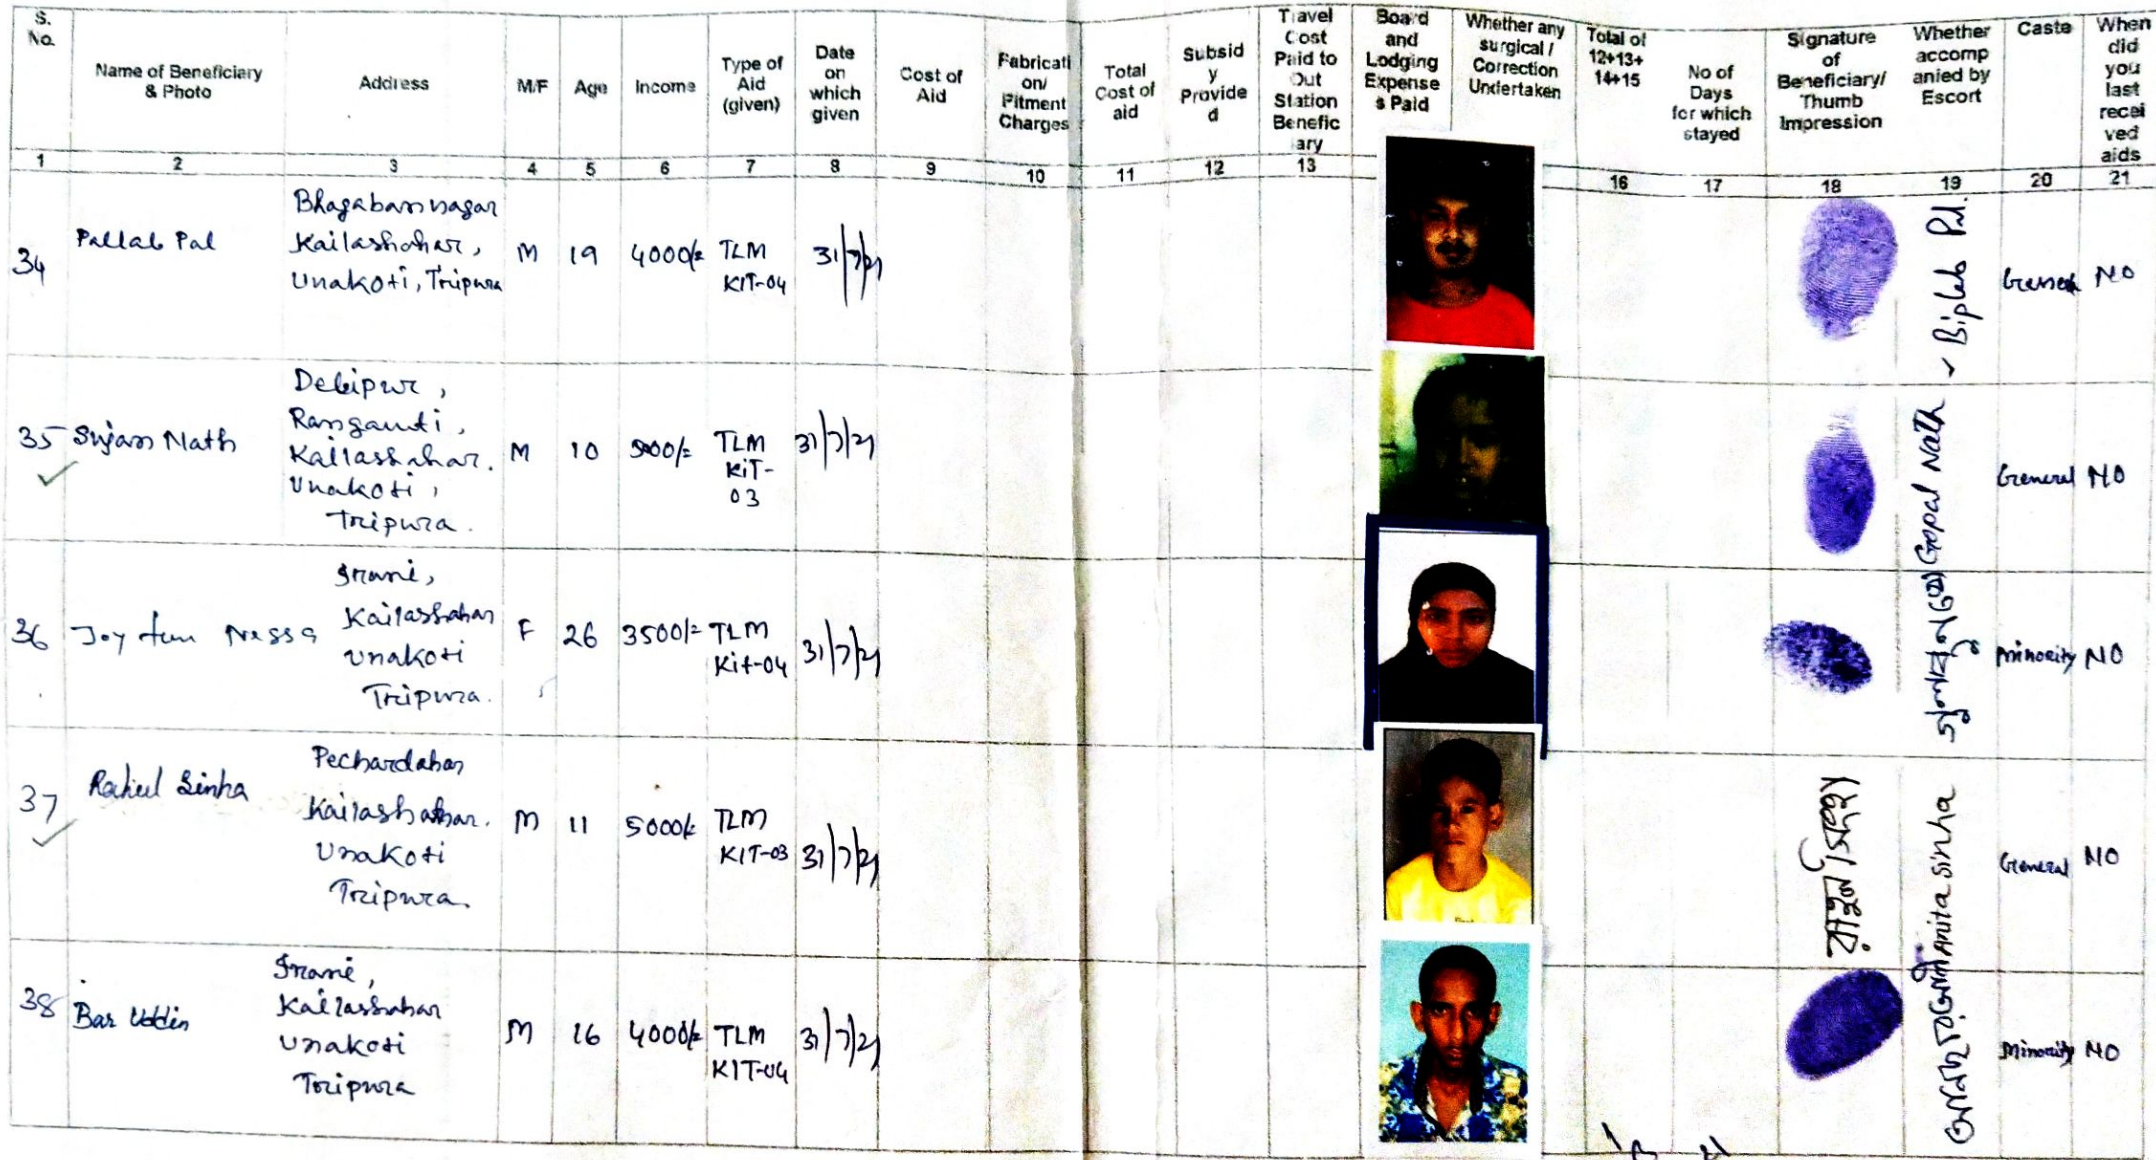 S. No.
Name of Beneficiary & Photo
Address
M/F
Age
Income
Type of Aid (given)
Date on which given
Cost of Aid
Fabricati on/ Fitment Charges
Total Cost of aid
Subsid y Provide d
Travel Cost Paid to Out Station Benefic ary
Board and Lodging Expense s Paid
Whether any surgical / Correction Undertaken
Total of 12+13+ 14+15
No of Days for which stayed
Signature of Beneficiary/ Thumb Impression
Whether accomp anied by Escort
Caste
When did you last recei ved aids
1 2 3 4 5 6 7 8 9 10 11 12 13 16 17 18 19 20 21
34 Pallab Pal
Bhagaban nagar
Kailashahar,
Unakoti, Tripura
M 19 4000/= TLM
KIT-04
31/7/21
Biplab Pal.
General NO
35 Sujan Nath
Debipur,
Rangauti,
Kailashahar.
Unakoti,
Tripura.
M 10 5000/= TLM
KIT-
03
31/7/21
Gopal Nath
General NO
36 Joytun Nessa
Irani,
Kailashahar
Unakoti
Tripura.
F 26 3500/= TLM
Kit-04
31/7/21
Minority NO
37 Rahul Sinha
Pechardahar
Kailashahar.
Unakoti
Tripura.
M 11 5000/= TLM
KIT-03
31/7/21
রাহুল সিনহা
Anita Sinha
General NO
38 Bar Uddin
Irani,
Kailashahar
Unakoti
Tripura
M 16 4000/= TLM
KIT-04
31/7/21
Minority NO